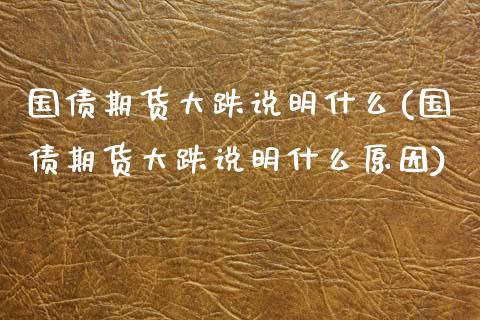 国债期货大跌说明什么(国
债期货大跌说明什么原因)